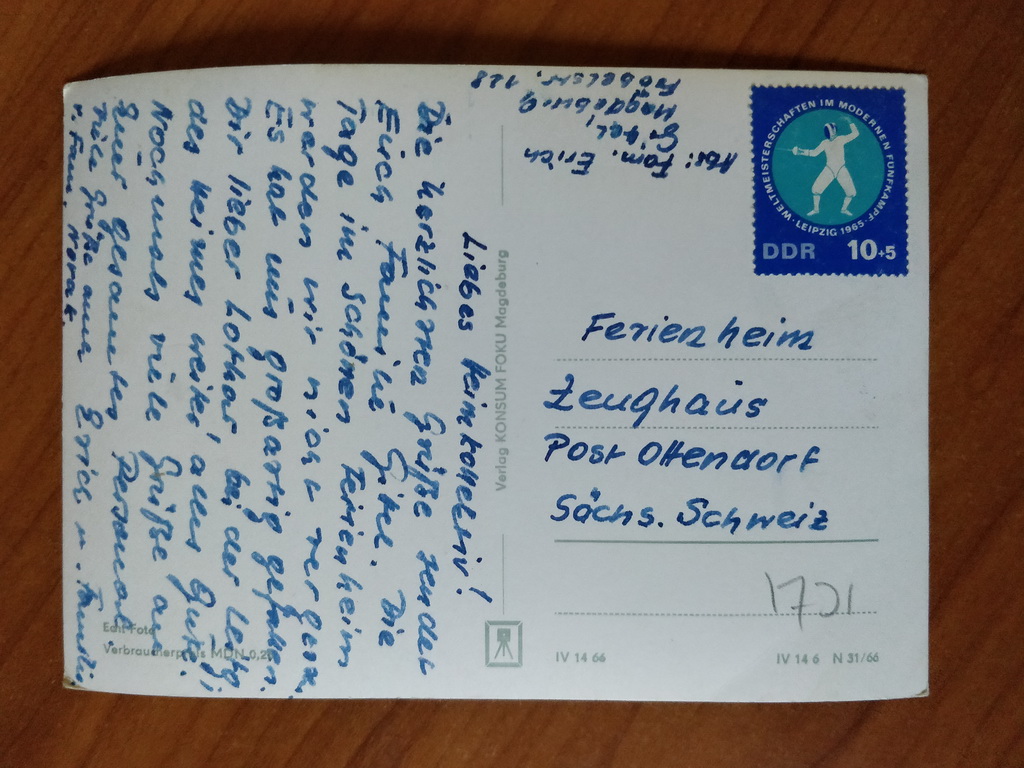 Liebes Heimkollektiv!
Die herzlichsten Grüße sendet
Euch Familie Gitel. Die
Tage im schönen Ferienheim
werden wir nicht vergess.
Es hat uns großartig gefallen.
Dir lieber Lothar, bei der Leitg.
des Heimes weiter alles Gute!
Nochmals viele Grüße an
Euer gesamtes Personal
Viele Grüße auch Erich u. Familie
u. Fam.
Abs: Fam. Erich
Gitel,
Magdeburg
128
WELTMEISTERSCHAFTEN IM MODERNEN FÜNFKAMPF
LEIPZIG 1965
DDR 10+5
Ferienheim
Zeughaus
Post Ottendorf
Sächs. Schweiz
1721
Verlag KONSUM FOKU Magdeburg
Edit-Foto
Verbraucherpreis MDN 0,20
IV 14 66
IV 14 6 N 31/66